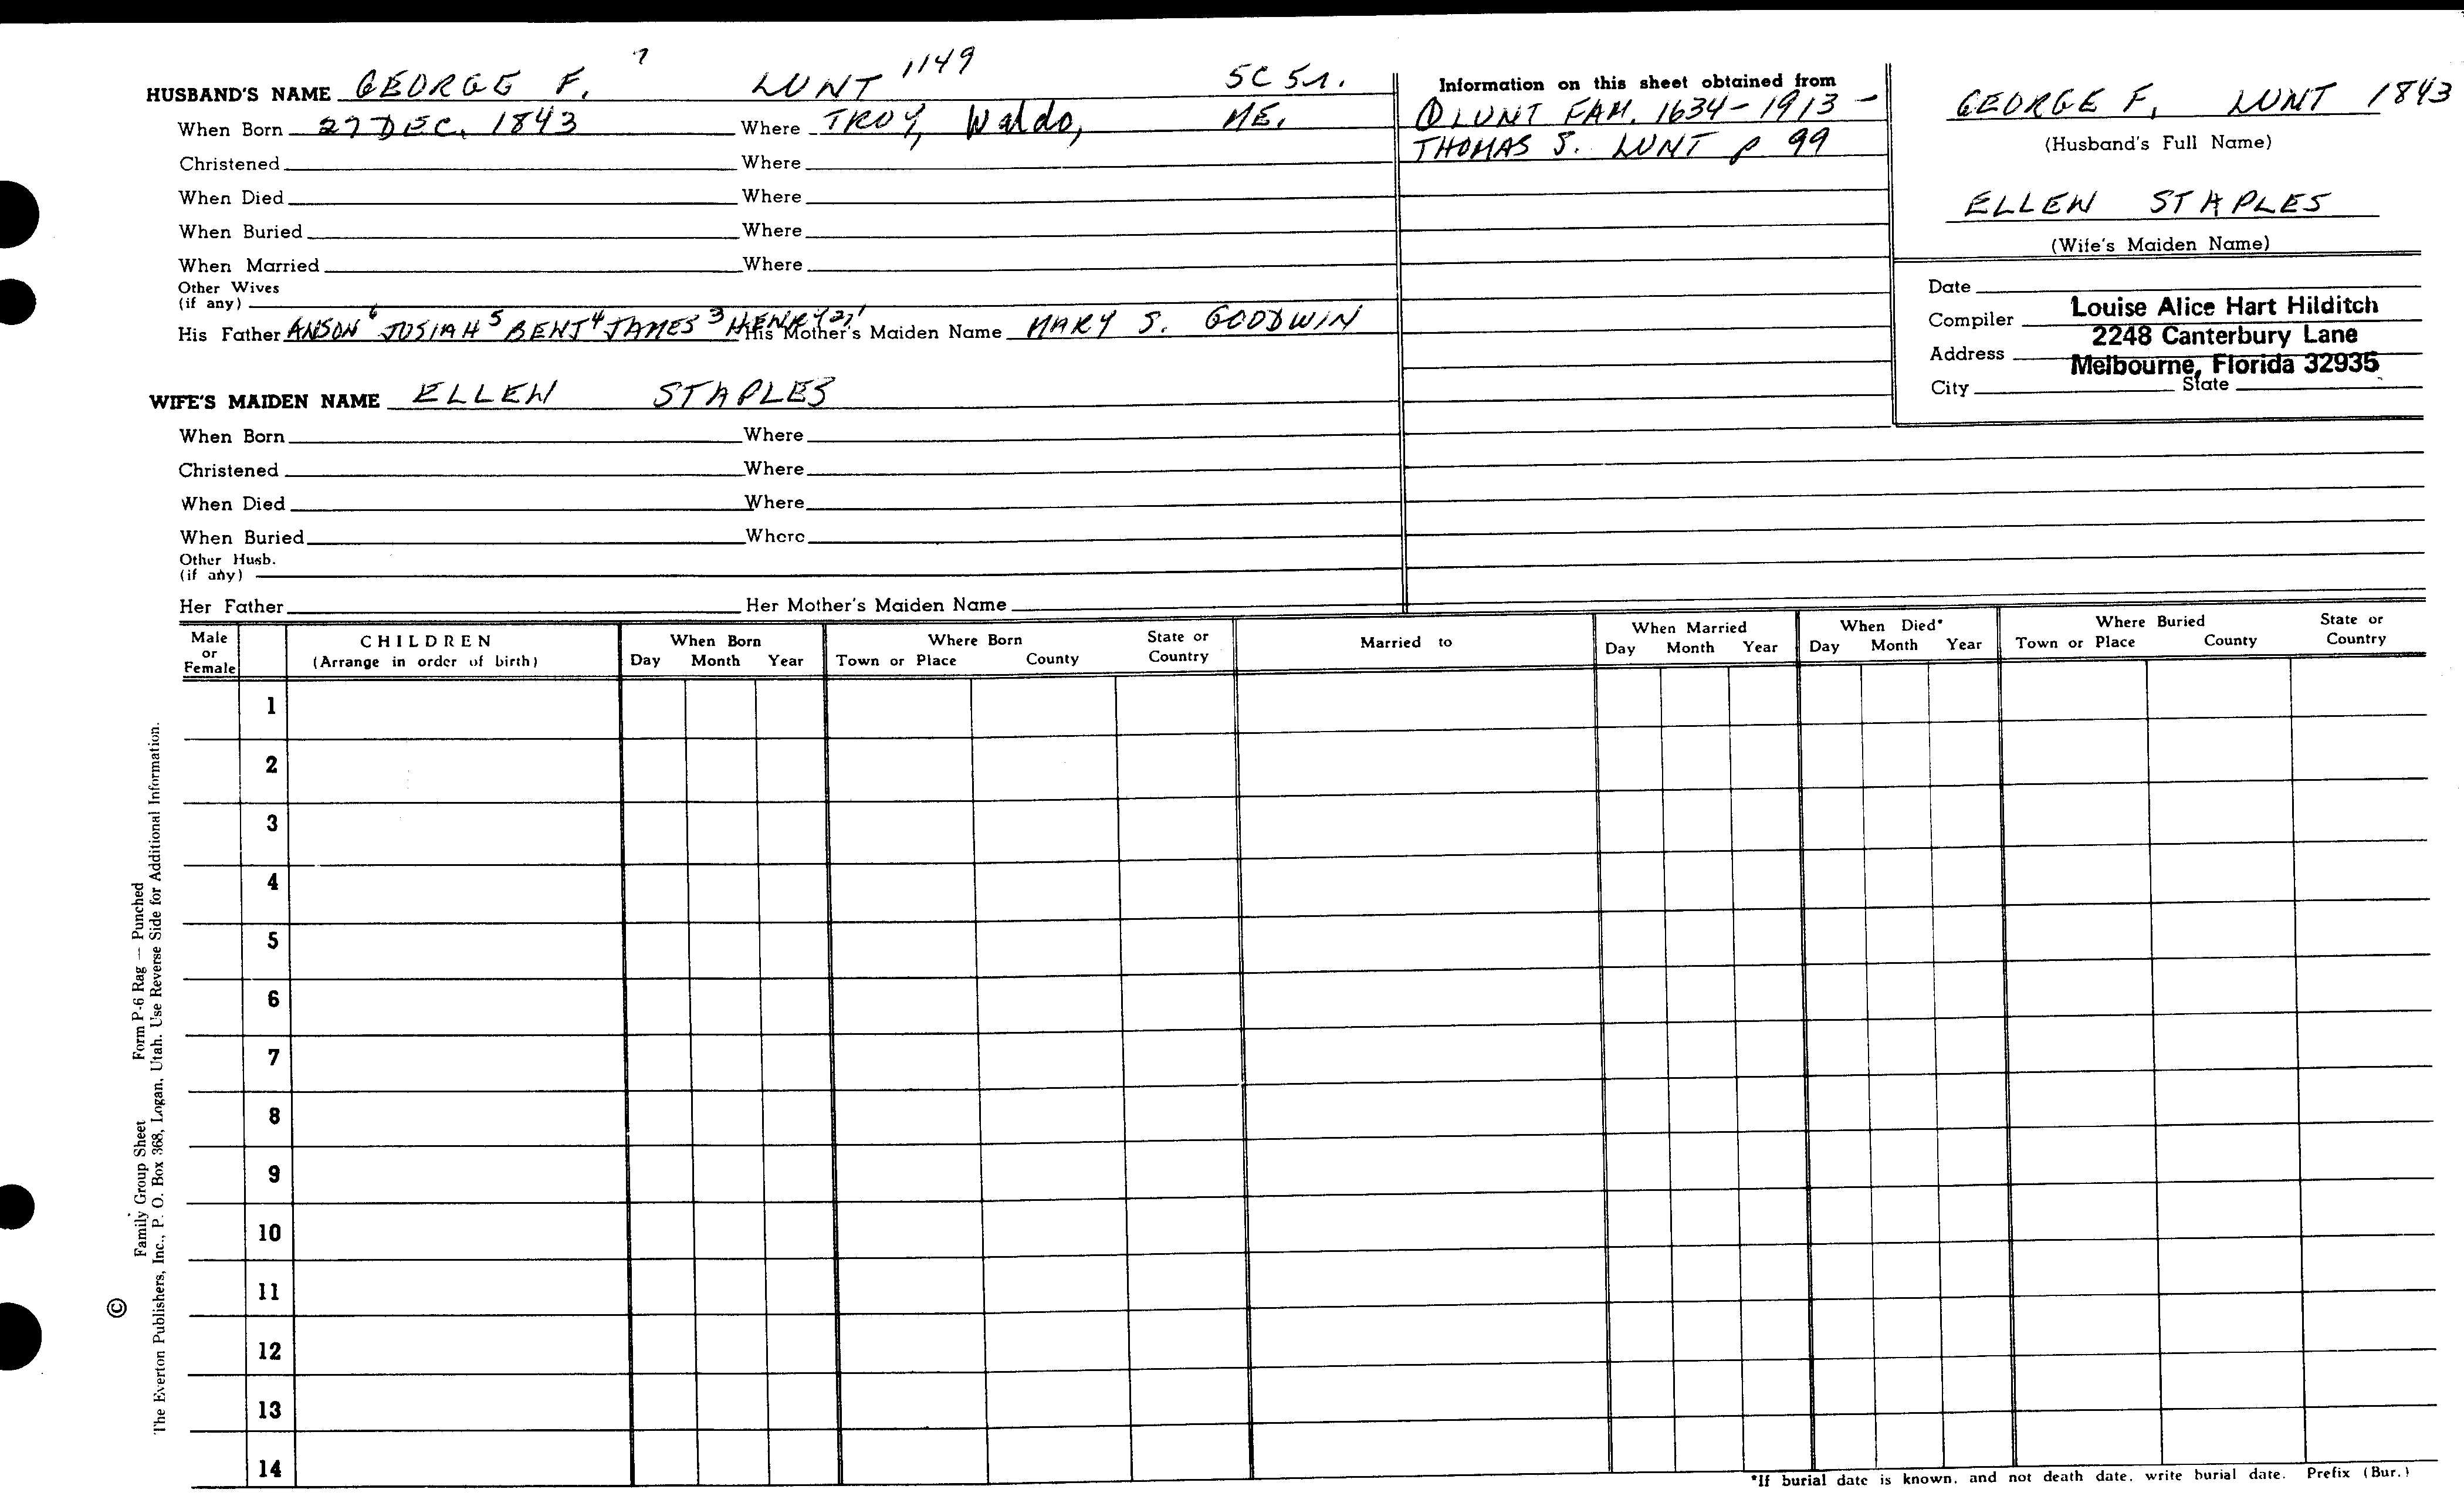 HUSBAND'S NAME GEORGE F. 7 LUNT 1149
When Born 27 DEC. 1843 Where TROY, Waldo, ME.
Christened Where
When Died Where
When Buried Where
When Married Where
Other Wives
(if any)
His Father ANSON 6 JOSIAH 5 BENJ 4 JAMES 3 HENRY 2,1 His Mother's Maiden Name MARY S. GOODWIN
WIFE'S MAIDEN NAME ELLEN STAPLES
When Born Where
Christened Where
When Died Where
When Buried Where
Other Husb.
(if any)
Her Father Her Mother's Maiden Name
Information on this sheet obtained from
① LUNT FAM. 1634-1913 -
THOMAS S. LUNT p 99
GEORGE F. LUNT 1843
(Husband's Full Name)
ELLEN STAPLES
(Wife's Maiden Name)
Date
Compiler Louise Alice Hart Hilditch
Address 2248 Canterbury Lane
Melbourne, Florida 32935
City State
Male or Female
CHILDREN
(Arrange in order of birth)
When Born
Day Month Year
Where Born
Town or Place County State or Country
Married to
When Married
Day Month Year
When Died*
Day Month Year
Where Buried
Town or Place County State or Country
1
2
3
4
5
6
7
8
9
10
11
12
13
14
*If burial date is known, and not death date, write burial date. Prefix (Bur.)
© Family Group Sheet Form P-6 Rag — Punched
The Everton Publishers, Inc., P. O. Box 368, Logan, Utah. Use Reverse Side for Additional Information.